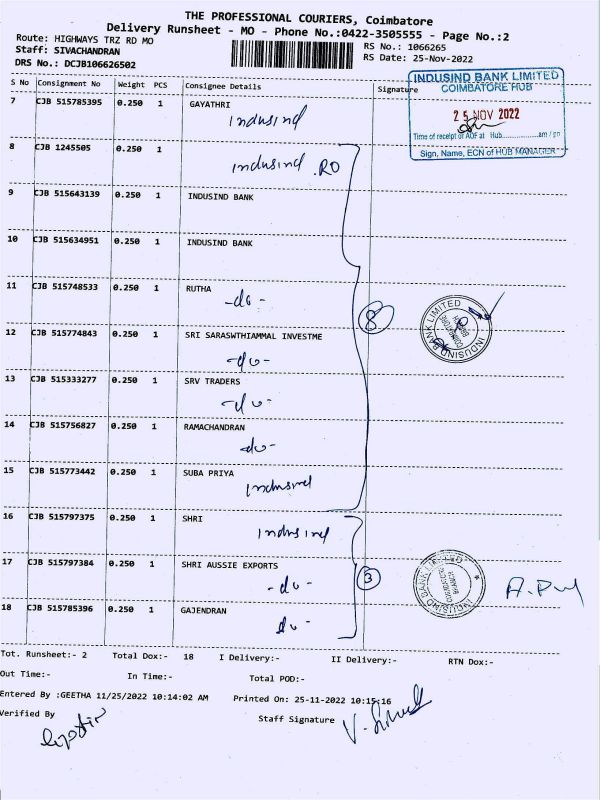 THE PROFESSIONAL COURIERS, Coimbatore
Delivery Runsheet - MO - Phone No.:0422-3505555 - Page No.:2
Route: HIGHWAYS TRZ RD MO
RS No.: 1066265
Staff: SIVACHANDRAN
RS Date: 25-Nov-2022
DRS No.: DCJB106626502
S No Consignment No Weight PCS Consignee Details Signature
INDUSIND BANK LIMITED
COIMBATORE HUB
25 NOV 2022
Time of receipt of AOF at Hub..............am / pm
Sign, Name, ECN of HUB MANAGER
7 CJB 515785395 0.250 1 GAYATHRI
Indusind
8 CJB 1245505 0.250 1
Indusind .RO
9 CJB 515643139 0.250 1 INDUSIND BANK
10 CJB 515634951 0.250 1 INDUSIND BANK
11 CJB 515748533 0.250 1 RUTHA
-do-
8
INDUSIND BANK LIMITED
12 CJB 515774843 0.250 1 SRI SARASWTHIAMMAL INVESTME
-do-
13 CJB 515333277 0.250 1 SRV TRADERS
-do-
14 CJB 515756827 0.250 1 RAMACHANDRAN
-do-
15 CJB 515773442 0.250 1 SUBA PRIYA
Indusind
16 CJB 515797375 0.250 1 SHRI
Indusind
17 CJB 515797384 0.250 1 SHRI AUSSIE EXPORTS
-do-
3
INDUSIND BANK LIMITED
18 CJB 515785396 0.250 1 GAJENDRAN
do-
Tot. Runsheet:- 2 Total Dox:- 18 I Delivery:- II Delivery:- RTN Dox:-
Out Time:- In Time:- Total POD:-
Entered By :GEETHA 11/25/2022 10:14:02 AM Printed On: 25-11-2022 10:15:16
Verified By Staff Signature